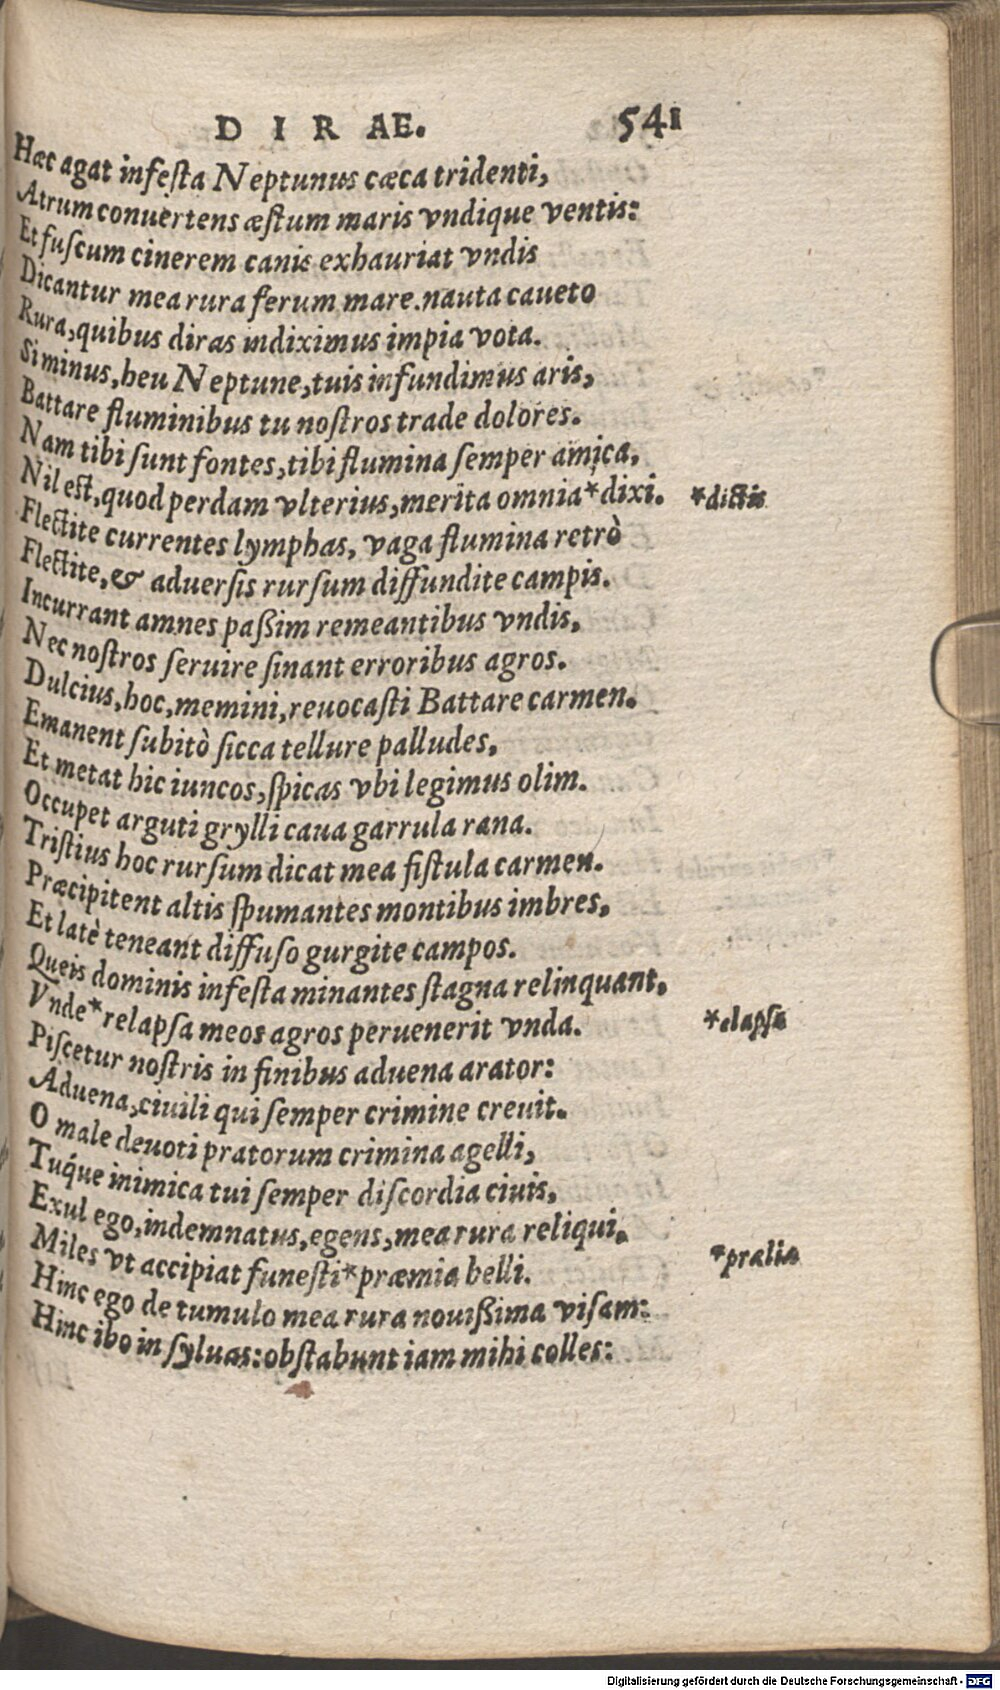 DIRAE. 541
Hæc agat infeſta Neptunus cæca tridenti,
Atrum conuertens æſtum maris vndique ventis:
Et fuſcum cinerem canis exhauriat vndis
Dicantur mea rura ferum mare. nauta caueto
Rura, quibus diras indiximus impia vota.
Si minus, heu Neptune, tuis infundimus aris,
Battare fluminibus tu noſtros trade dolores.
Nam tibi ſunt fontes, tibi flumina ſemper amica,
Nil eſt, quod perdam vlterius, merita omnia*dixi. *dictis
Flectite currentes lymphas, vaga flumina retrò
Flectite, & aduerſis rurſum diffundite campis.
Incurrant amnes paßim remeantibus vndis,
Nec noſtros ſeruire ſinant erroribus agros.
Dulcius, hoc, memini, reuocaſti Battare carmen.
Emanent ſubitò ſicca tellure palludes,
Et metat hic iuncos, ſpicas vbi legimus olim.
Occupet arguti grylli caua garrula rana.
Triſtius hoc rurſum dicat mea fiſtula carmen.
Præcipitent altis ſpumantes montibus imbres,
Et latè teneant diffuſo gurgite campos.
Queis dominis infeſta minantes ſtagna relinquant.
Vnde*relapſa meos agros peruenerit vnda. *elapſa
Piſcetur noſtris in finibus aduena arator:
Aduena, ciuili qui ſemper crimine creuit.
O male deuoti pratorum crimina agelli,
Tuq́ue inimica tui ſemper diſcordia ciuis,
Exul ego, indemnatus, egens, mea rura reliqui,
Miles vt accipiat funeſti*præmia belli. *prælia
Hinc ego de tumulo mea rura nouißima viſam:
Hinc ibo in ſyluas: obſtabunt iam mihi colles:
Digitalisierung gefördert durch die Deutsche Forschungsgemeinschaft - DFG